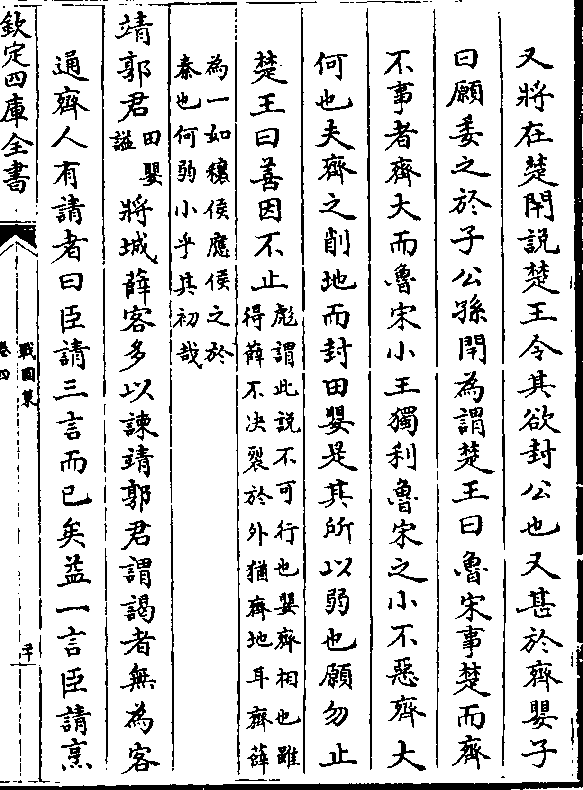 又將在楚閈說楚王令其欲封公也又甚於齊嬰子
曰願委之於子公孫閈為謂楚王曰魯宋事楚而齊
不事者齊大而魯宋小王獨利魯宋之小不惡齊大
何也夫齊之削地而封田嬰是其所以弱也願勿止
楚王曰善因不止
彪謂此説不可行也嬰齊相也雖
得薛不決裂於外猶齊地耳齊薛
為一如穰侯應侯之於
秦也何弱小乎其初哉
靖郭君
田嬰
諡
將城薛客多以諫靖郭君謂謁者無為客
通齊人有請者曰臣請三言而已矣益一言臣請烹
欽定四庫全書
戰國策
卷四